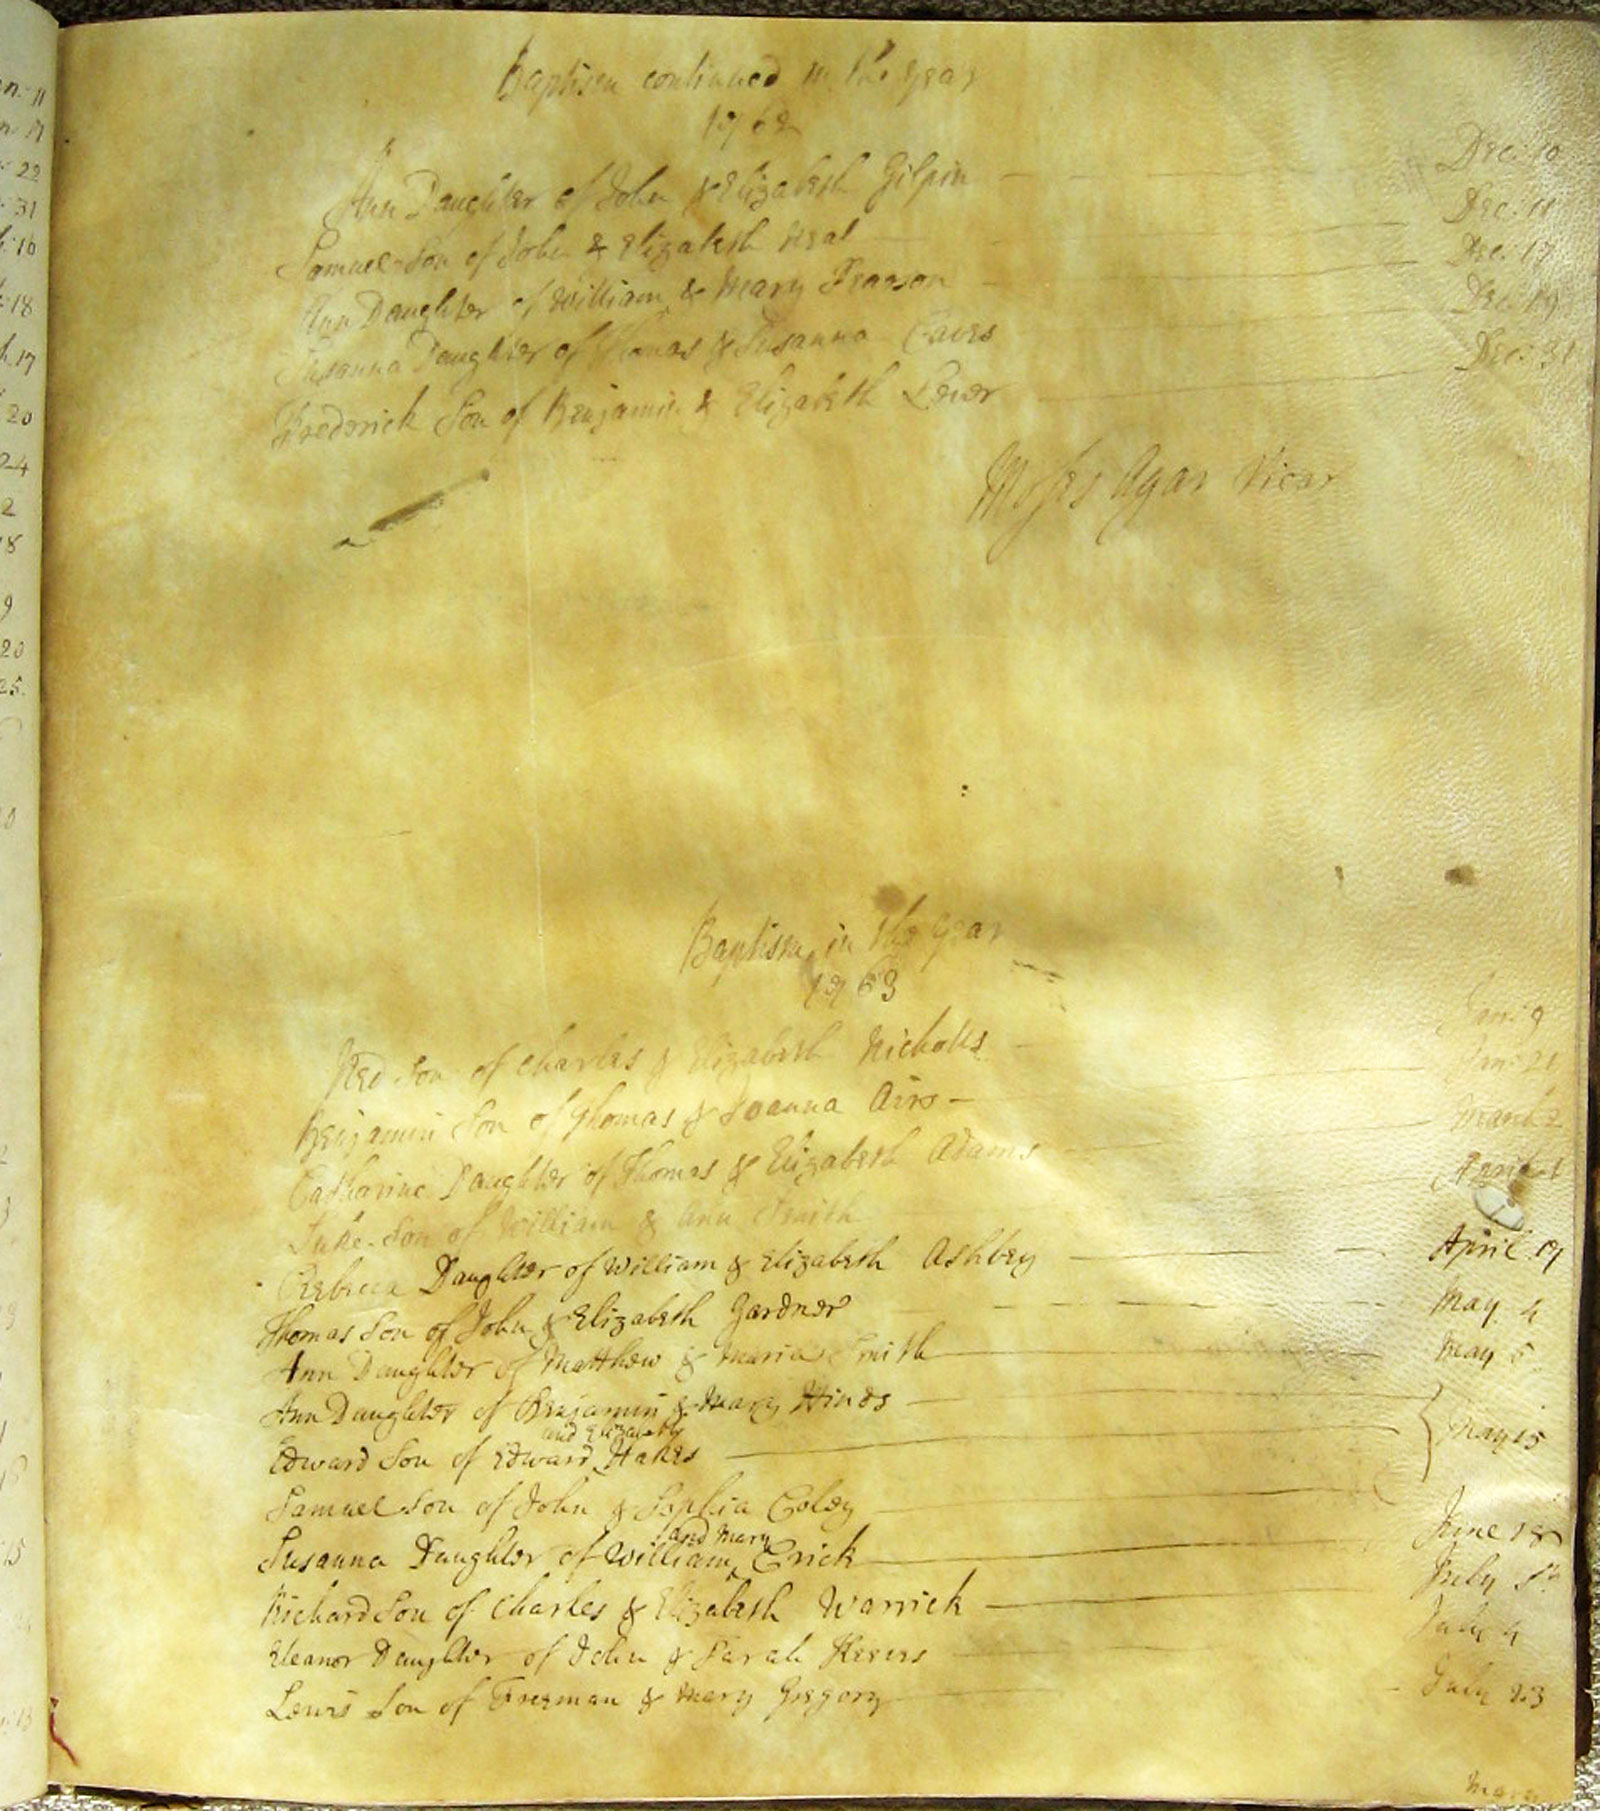 Baptism continued in the year
1762
Ann Daughter of John & Elizabeth Gilpin Dec: 10
Samuel Son of John & Elizabeth Neal Dec: 11
Ann Daughter of William & Mary Pearson Dec: 17
Susanna Daughter of Thomas & Susanna Eaves Dec: 19
Frederick Son of Benjamin & Elizabeth Lever Dec: 31
Moses Agar Vicar
Baptism in the year
1763
Ned Son of Charles & Elizabeth Nicholls Jan: 9
Benjamin Son of Thomas & Joanna Airs Jan: 21
Catharine Daughter of Thomas & Elizabeth Adams March 2
Luke Son of William & Ann Smith April 1
Rebecca Daughter of William & Elizabeth Ashbey April 17
Thomas Son of John & Elizabeth Gardner May 4
Ann Daughter of Matthew & Maria Smith May 5
Ann Daughter of Benjamin & Mary Hinds
and Elizabeth
Edward Son of Edward Hakes May 15
Samuel Son of John & Sophia Coley
and Mary
Susanna Daughter of William Crick June 18
Richard Son of Charles & Elizabeth Warrick July
Eleanor Daughter of John & Sarah July 4
Lewis Son of Freeman & Mary Gregory July 23